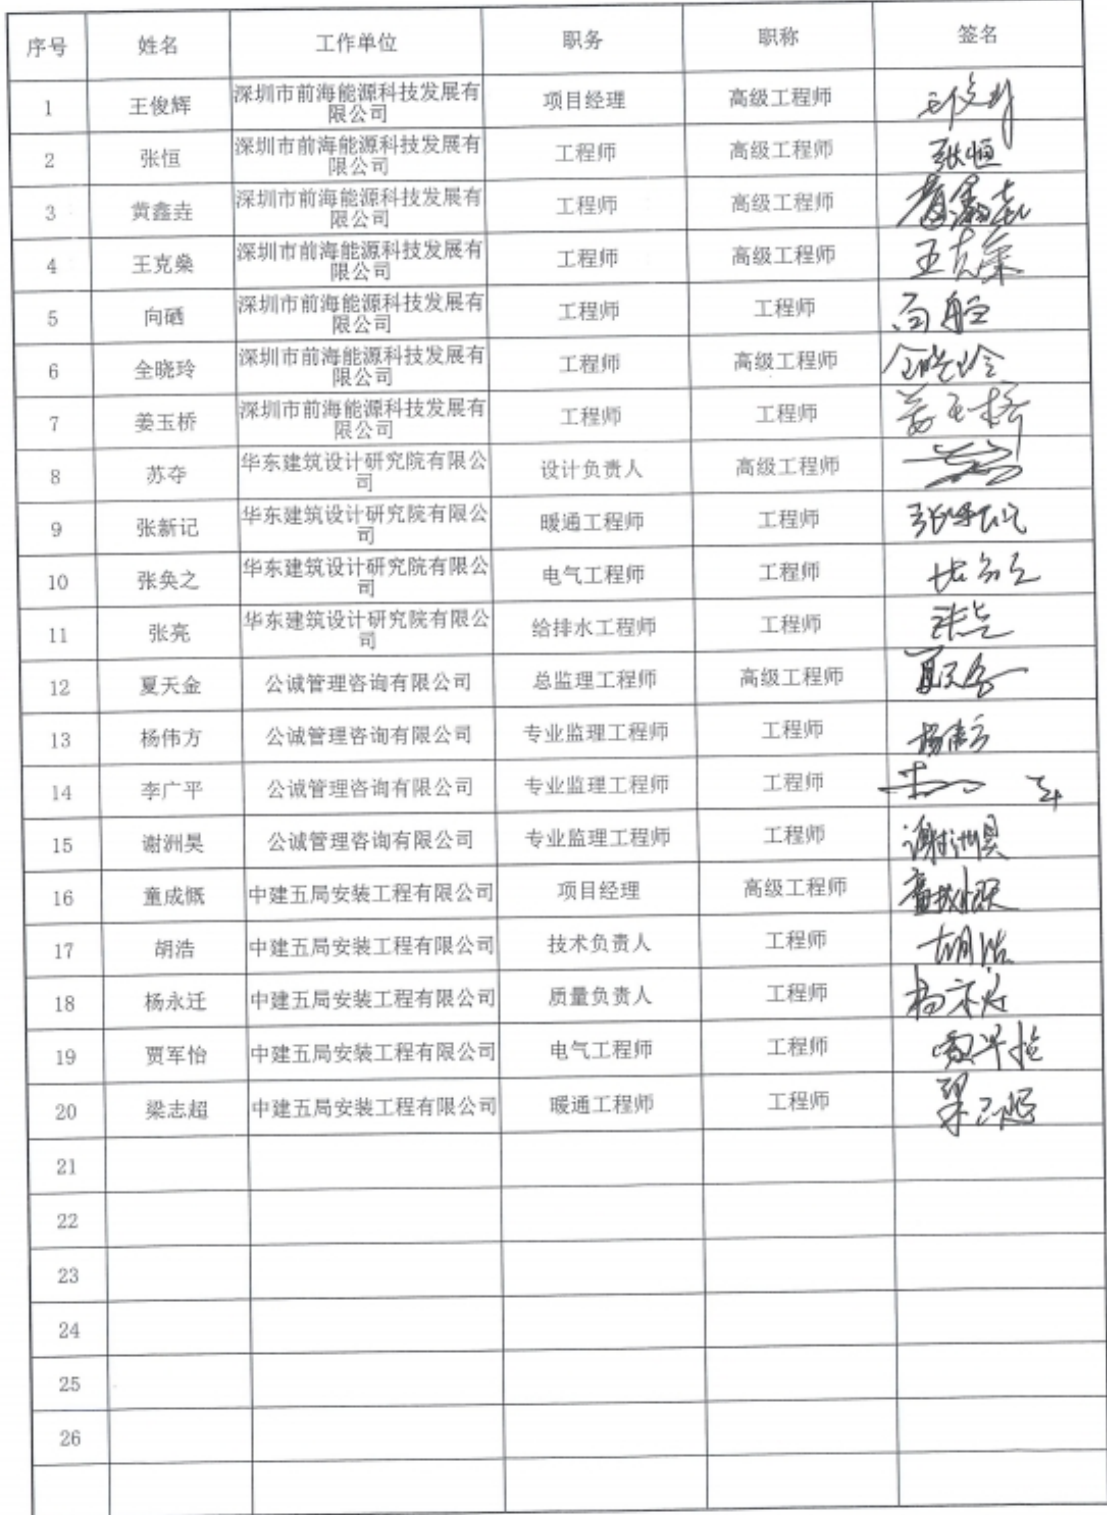 序号 姓名 工作单位 职务 职称 签名
1 王俊辉 深圳市前海能源科技发展有限公司 项目经理 高级工程师
2 张恒 深圳市前海能源科技发展有限公司 工程师 高级工程师 张恒
3 黄鑫垚 深圳市前海能源科技发展有限公司 工程师 高级工程师 黄鑫垚
4 王克燊 深圳市前海能源科技发展有限公司 工程师 高级工程师 王克燊
5 向硒 深圳市前海能源科技发展有限公司 工程师 工程师 向硒
6 全晓玲 深圳市前海能源科技发展有限公司 工程师 高级工程师 全晓玲
7 姜玉桥 深圳市前海能源科技发展有限公司 工程师 工程师 姜玉桥
8 苏夺 华东建筑设计研究院有限公司 设计负责人 高级工程师
9 张新记 华东建筑设计研究院有限公司 暖通工程师 工程师
10 张奂之 华东建筑设计研究院有限公司 电气工程师 工程师
11 张亮 华东建筑设计研究院有限公司 给排水工程师 工程师 张亮
12 夏天金 公诚管理咨询有限公司 总监理工程师 高级工程师 夏天金
13 杨伟方 公诚管理咨询有限公司 专业监理工程师 工程师 杨伟方
14 李广平 公诚管理咨询有限公司 专业监理工程师 工程师
15 谢洲昊 公诚管理咨询有限公司 专业监理工程师 工程师 谢洲昊
16 童成慨 中建五局安装工程有限公司 项目经理 高级工程师 童成慨
17 胡浩 中建五局安装工程有限公司 技术负责人 工程师 胡浩
18 杨永迁 中建五局安装工程有限公司 质量负责人 工程师 杨永迁
19 贾军怡 中建五局安装工程有限公司 电气工程师 工程师 贾军怡
20 梁志超 中建五局安装工程有限公司 暖通工程师 工程师 梁志超
21
22
23
24
25
26